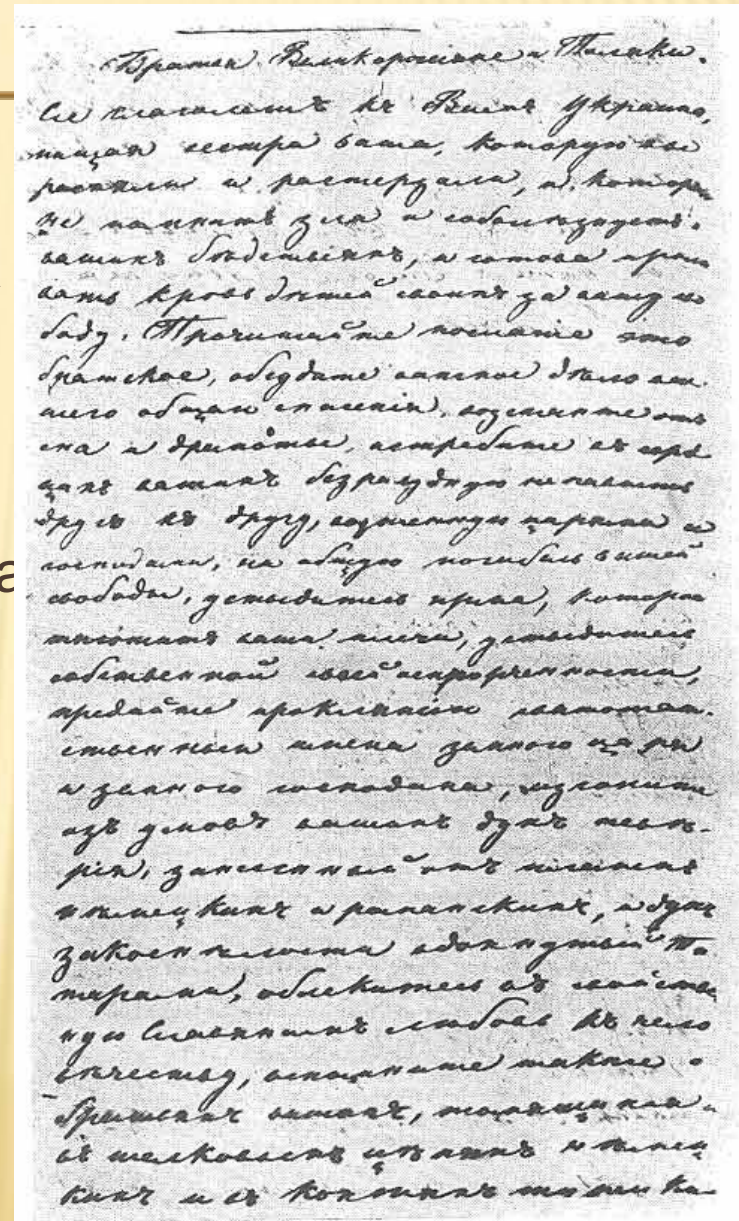 Братья Великороссіяне и Поляки.
Сіе глаголетъ къ Вамъ Украина,
нищая сестра ваша, которую вы
распяли и растерзали, и котора
не помнитъ зла и соболѣзнуетъ
вашимъ бѣдствіямъ, и готова проли
вать кровь дѣтей своихъ за вашу сво
боду. Прочитайте посланіе это
братское, обсудите важное дѣло ва
шего общаго спасенія, возстаньте отъ
сна и дремоты, истребите въ серд
цахъ вашихъ безразсудную ненависть
другъ къ другу, возженную царями и
господами, на общую погибель вашей
свободы, устыдитесь ярма, которое
тяготитъ ваши плечи, устыдитесь
собственной своей испорченности,
предайте проклятію святотат
ственныя имена земного царя
и земного господина, изгоните
изъ умовъ вашихъ духъ невѣ-
рія, занесенный отъ племенъ
нѣмецкихъ и романскихъ, и духъ
закоснѣлости вдохнутый Та
тарами, облекитесь въ свойствен
ную Славянамъ любовь къ чело
вѣчеству, вспомните также о
братьяхъ вашихъ, томящихся
въ шелковыхъ цѣпяхъ нѣмец
кихъ и въ когтяхъ турецки
а